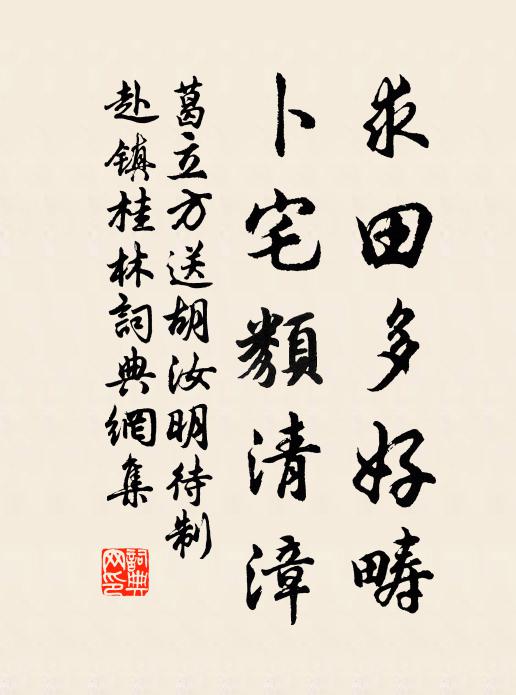 求田多好疇
卜宅類清漳
葛立方送胡汝明待制
赴鎮桂林詞典網集
詞典網印